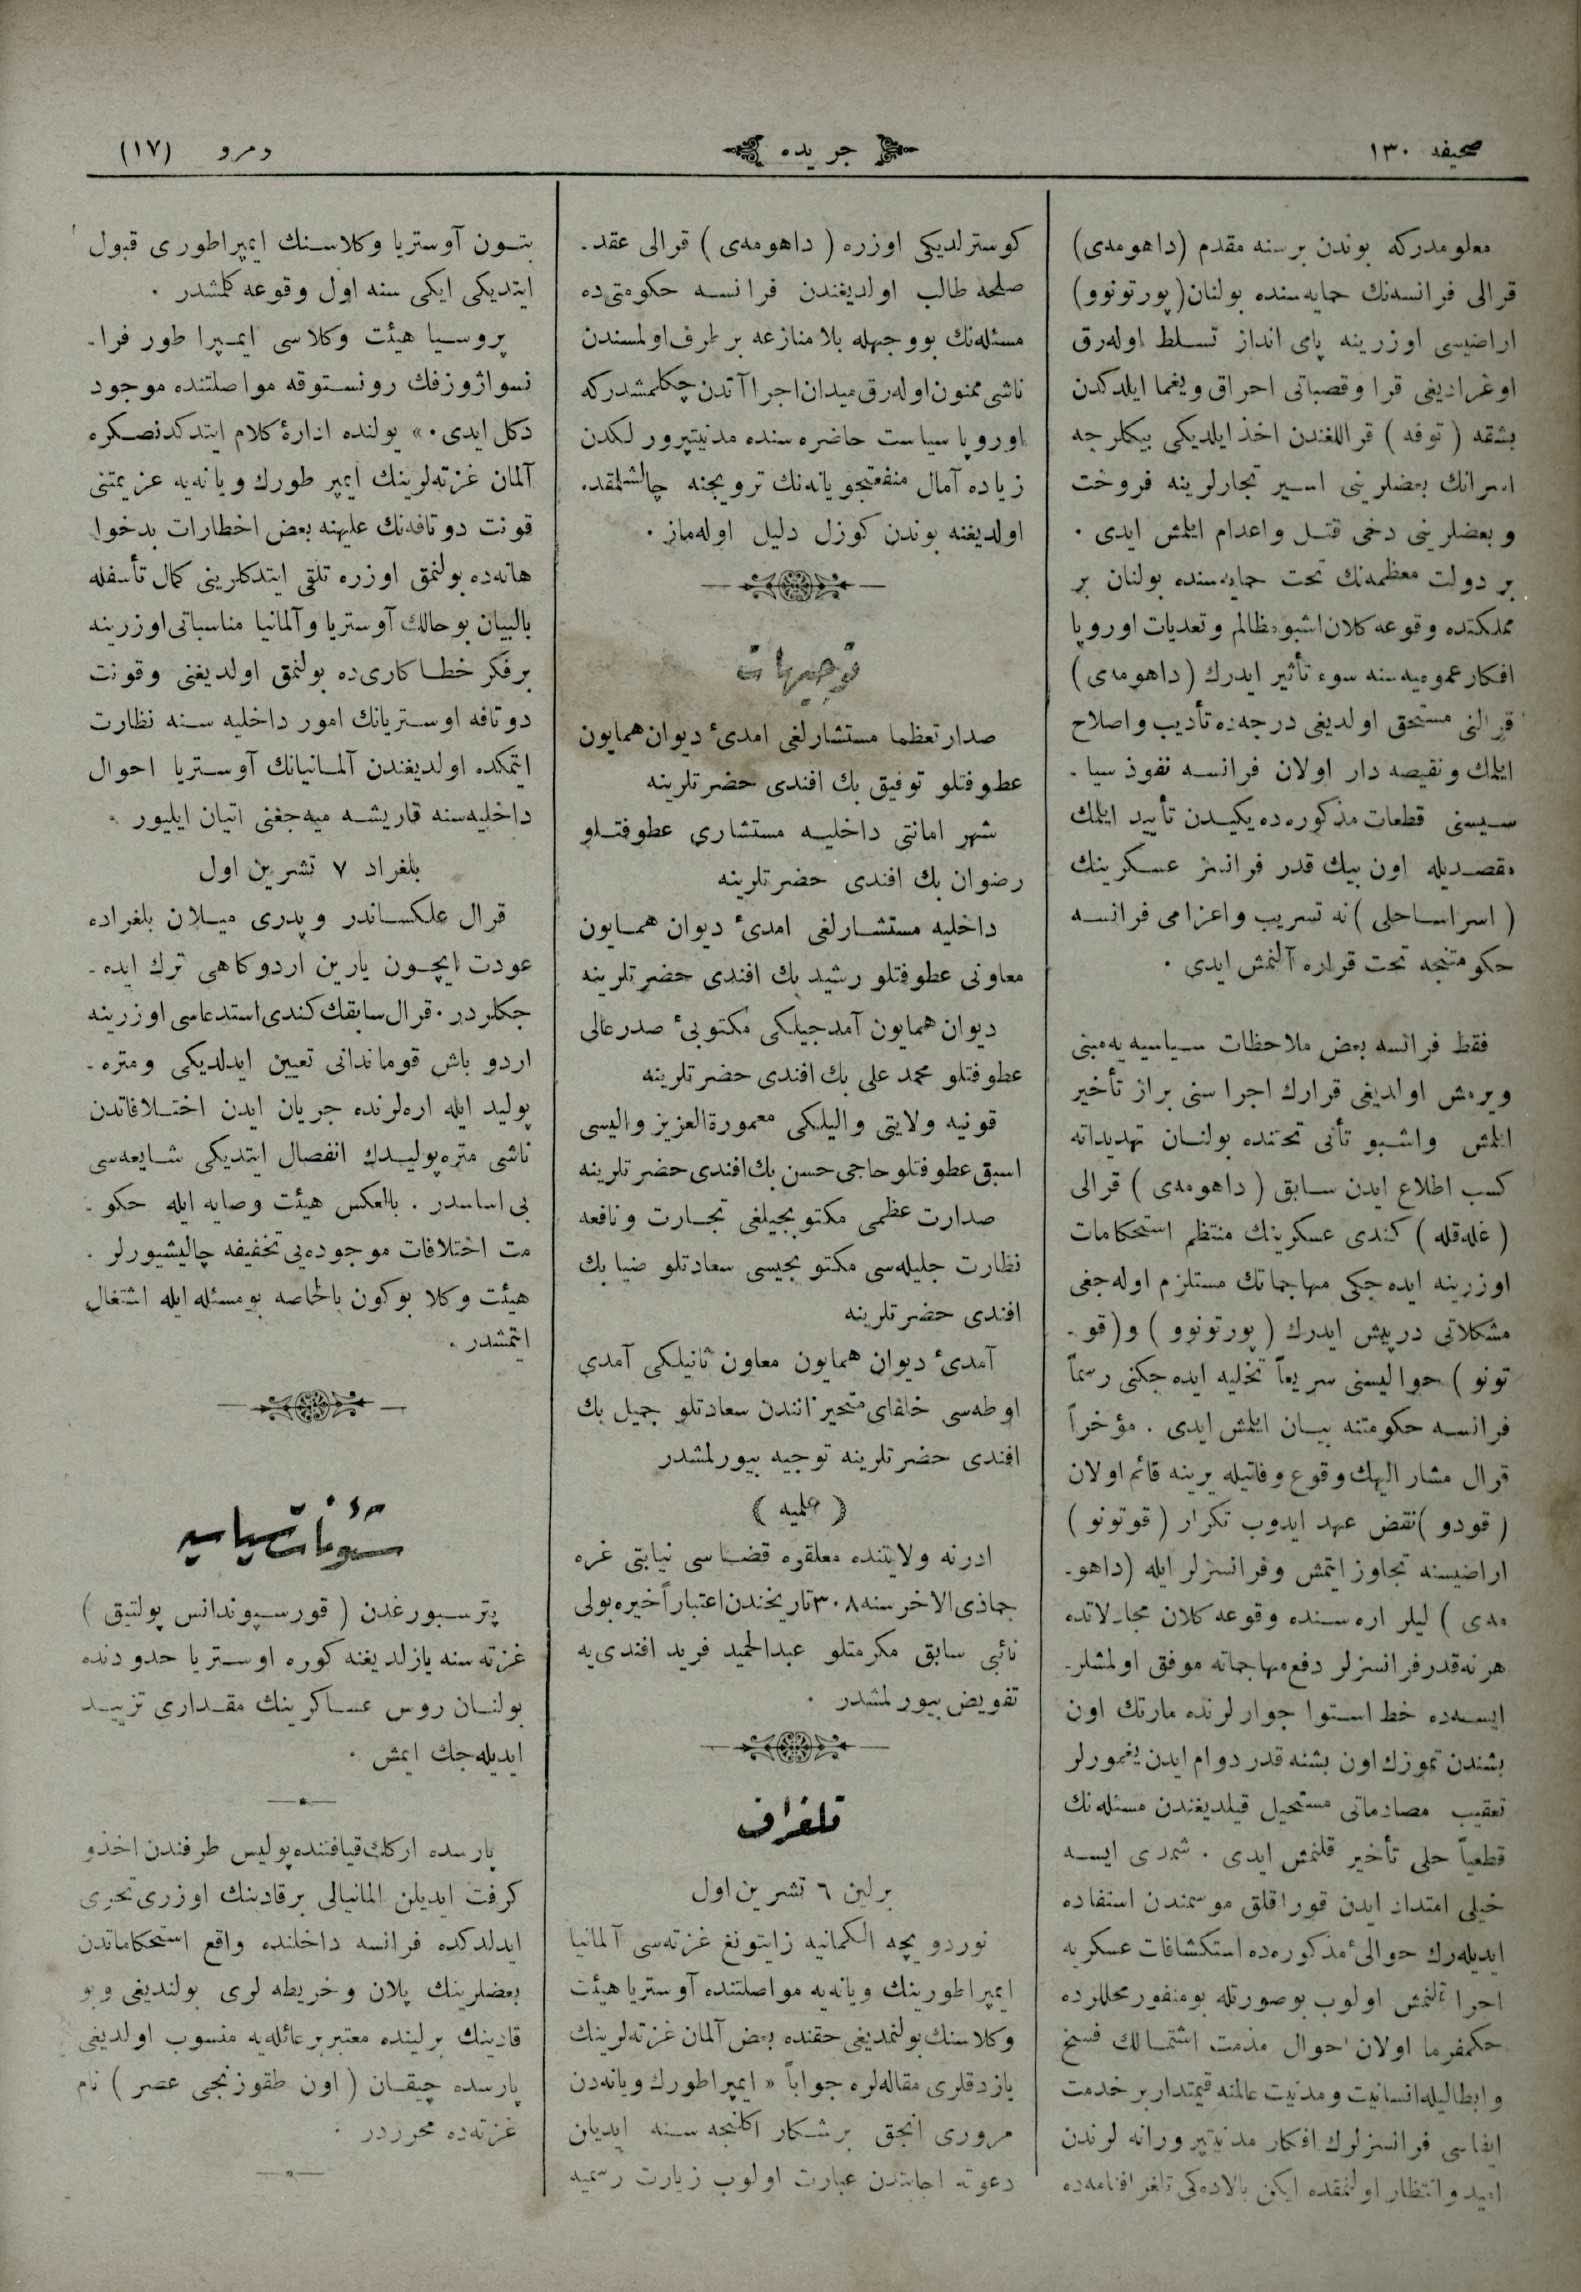 صحیفه ١٣٠
جریده
ومرو (١٧)
معلومدرکه بوندن برسنه مقدم (داهومه‌ی)
قرالی فرانسه‌نك حمایه‌سنده بولنان (پورتونوو)
اراضیسی اوزرینه پای انداز تسلط اوله‌رق
اوغرادیغی قرا وقصباتی احراق ویغما ایلدکدن
بشقه ( توفه ) قراللغندن اخذ ایلدیکی بیکلرجه
اسرانك بعضلرینی اسیر تجارلرینه فروخت
و بعضلرینی دخی قتل واعدام ایلمش ایدی .
بر دولت معظمه‌نك تحت حمایه‌سنده بولنان بر
مملکتده وقوعه کلان اشبو مظالم وتعدیات اوروپا
افکار عمومیه‌سنه سوء تأثیر ایدرك (داهومه‌ی)
قرالنی مستحق اولدیغی درجه‌ده تأدیب واصلاح
ایلمك ونقیصه دار اولان فرانسه نفوذ سیا-
سیسنی قطعات مذکوره‌ده یکیدن تأیید ایلمك
مقصدیله اون بیك قدر فرانسز عسکرینك
( اسراساحلی )نه تسریب واعزامی فرانسه
حکومتنجه تحت قراره آلنمش ایدی .
فقط فرانسه بعض ملاحظات سیاسیه‌یه مبنی
ویرمش اولدیغی قرارك اجراسنی براز تأخیر
ایلمش واشبو تأنی تحتنده بولنان تهدیداته
کسب اطلاع ایدن سابق ( داهومه‌ی ) قرالی
( غله‌قله ) کندی عسکرینك منتظم استحکامات
اوزرینه ایده‌جکی مهاجماتك مستلزم اوله‌جغی
مشکلاتی درپیش ایدرك ( پورتونوو ) و( قو-
تونو ) حوالیسنی سریعاً تخلیه ایده‌جکنی رسماً
فرانسه حکومتنه بیان ایلمش ایدی . مؤخراً
قرال مشار الیهك وقوع وفاتیله یرینه قائم اولان
( قودو )نقض عهد ایدوب تکرار ( قوتونو )
اراضیسنه تجاوز ایتمش وفرانسزلر ایله (داهو-
مه‌ی ) لیلر اره‌سنده وقوعه کلان محارلاتده
هرنه‌قدر فرانسزلر دفع مهاجماته موفق اولمشلر-
ایسه‌ده خط استوا جوارلرنده مارتك اون
بشندن تموزك اون بشنه قدر دوام ایدن یغمورلر
تعقیب مصادماتی مستحیل قیلدیغندن مسئله‌نك
قطعیاً حلی تأخیر قلنمش ایدی . شمدی ایسه
خیلی امتداد ایدن قوراقلق موسمندن استفاده
ایدیله‌رك حوالیٔ مذکوره‌ده استکشافات عسکریه
اجرا قلنمش اولوب بوصورتله بومنفور محللرده
حکمفرما اولان احوال مذمت اشتمالك فسخ
وابطالیله انسانیت ومدنیت عالمنه قیمتدار بر خدمت
ایفاسی فرانسزلرك افکار مدنیتپرورانه لرندن
امید وانتظار اولنمقده ایکن بالاده‌کی تلغرافنامه‌ده
کوسترلدیکی اوزره ( داهومه‌ی ) قرالی عقد-
صلحه طالب اولدیغندن فرانسه حکومتی‌ده
مسئله‌نك بووجهله بلامنازعه برطرف اولمسندن
ناشی ممنون اوله‌رق میدان اجراآتدن چکلمشدرکه
اوروپا سیاست حاضره‌سنده مدنیتپرورلکدن
زیاده آمال منفعتجویانه‌نك ترویجنه چالشلمقده
اولدیغنه بوندن کوزل دلیل اوله‌ماز .
توجیهات
صدارتعظما مستشارلغی امدیٔ دیوان همایون
عطوفتلو توفیق بك افندی حضرتلرینه
شهر امانتی داخلیه مستشاری عطوفتلو
رضوان بك افندی حضرتلرینه
داخلیه مستشارلغی امدیٔ دیوان همایون
معاونی عطوفتلو رشید بك افندی حضرتلرینه
دیوان همایون آمدجیلکی مکتوبیٔ صدرعالی
عطوفتلو محمد علی بك افندی حضرتلرینه
قونیه ولایتی والیلکی معمورةالعزیز والیسی
اسبق عطوفتلو حاجی حسن بك افندی حضرتلرینه
صدارت عظمی مکتوبجیلغی تجارت ونافعه
نظارت جلیله‌سی مکتوبجیسی سعادتلو ضیا بك
افندی حضرتلرینه
آمدیٔ دیوان همایون معاون ثانیلکی آمدی
اوطه‌سی خلفای متحیزانندن سعادتلو جمیل بك
افندی حضرتلرینه توجیه بیورلمشدر
( علمیه )
ادرنه ولایتنده معلقره قضاسی نیابتی غره
جماذی‌الاخر سنه ٣٠٨ تاریخندن اعتباراً خیره‌بولی
نائبی سابق مکرمتلو عبدالحمید فرید افندی‌یه
تفویض بیورلمشدر .
تلغراف
برلین ٦ تشرین اول
نوردویچه الکمانیه زایتونغ غزته‌سی آلمانیا
ایمپراطورینك ویانه‌یه مواصلتنده آوستریا هیئت
وکلاسنك بولنمدیغی حقنده بعض آلمان غزته‌لرینك
یازدقلری مقاله‌لره جواباً « ایمپراطورك ویانه‌دن
مروری انجق برشکار اکلنجه سنه ایدیلن
دعوته اجابتدن عبارت اولوب زیارت رسمیه
بتون آوستریا وکلاسنك ایمپراطوری قبول
ایتدیکی ایکی سنه اول وقوعه کلمشدر .
پروسیا هیئت وکلاسی ایمپراطور فرا-
نسواژوزفك رونستوقه مواصلتنده موجود
دکل ایدی .» یولنده ادارۀ کلام ایتدکدنصکره
آلمان غزته‌لرینك ایمپرطورك ویانه‌یه عزیمتنی
قونت دوتافه‌نك علیهنه بعض اخطارات بدخوا
هانه‌ده بولنمق اوزره تلقی ایتدکلرینی کمال تأسفله
بالبیان بوحالك آوستریا وآلمانیا مناسباتی اوزرینه
برفکر خطاکاری‌ده بولنمق اولدیغنی وقونت
دوتافه اوستریانك امور داخلیه سنه نظارت
ایتمکده اولدیغندن آلمانیانك آوستریا احوال
داخلیه‌سنه قاریشه میه‌جغنی اتیان ایلیور .
بلغراد ٧ تشرین اول
قرال علکساندر وپدری میلان بلغراده
عودت ایچون یارین اردوکاهی ترك ایده-
جکلردر . قرال سابقك کندی استدعاسی اوزرینه
اردو باش قوماندانی تعیین ایدلدیکی ومتره-
پولید ایله اره‌لرنده جریان ایدن اختلافاتدن
ناشی متره‌پولیدك انفصال ایتدیکی شایعه‌سی
بی اساسدر . بالعکس هیئت وصایه ایله حکو-
مت اختلافات موجوده‌یی تخفیفه چالیشیورلر .
هیئت وکلا بوکون باخاصه بومسئله ایله اشتغال
ایتمشدر .
شئونات سیاسیه
پترسبورغدن ( قورسپوندانس پولتیق )
غزته‌سنه یازلدیغنه کوره اوستریا حدودنده
بولنان روس عساکرینك مقداری تزیید
ایدیله‌جك ایمش .
پارسده ارکك قیافتنده پولیس طرفندن اخذو
کرفت ایدیلن المانیالی برقادینك اوزری تحری
ایدلدکده فرانسه داخلنده واقع استحکاماتدن
بعضلرینك پلان وخریطه لری بولندیغی وبو
قادینك برلینده معتبر برعائله‌یه منسوب اولدیغی
پارسده چیقان ( اون طقوزنجی عصر ) نام
غزته‌ده محرردر .